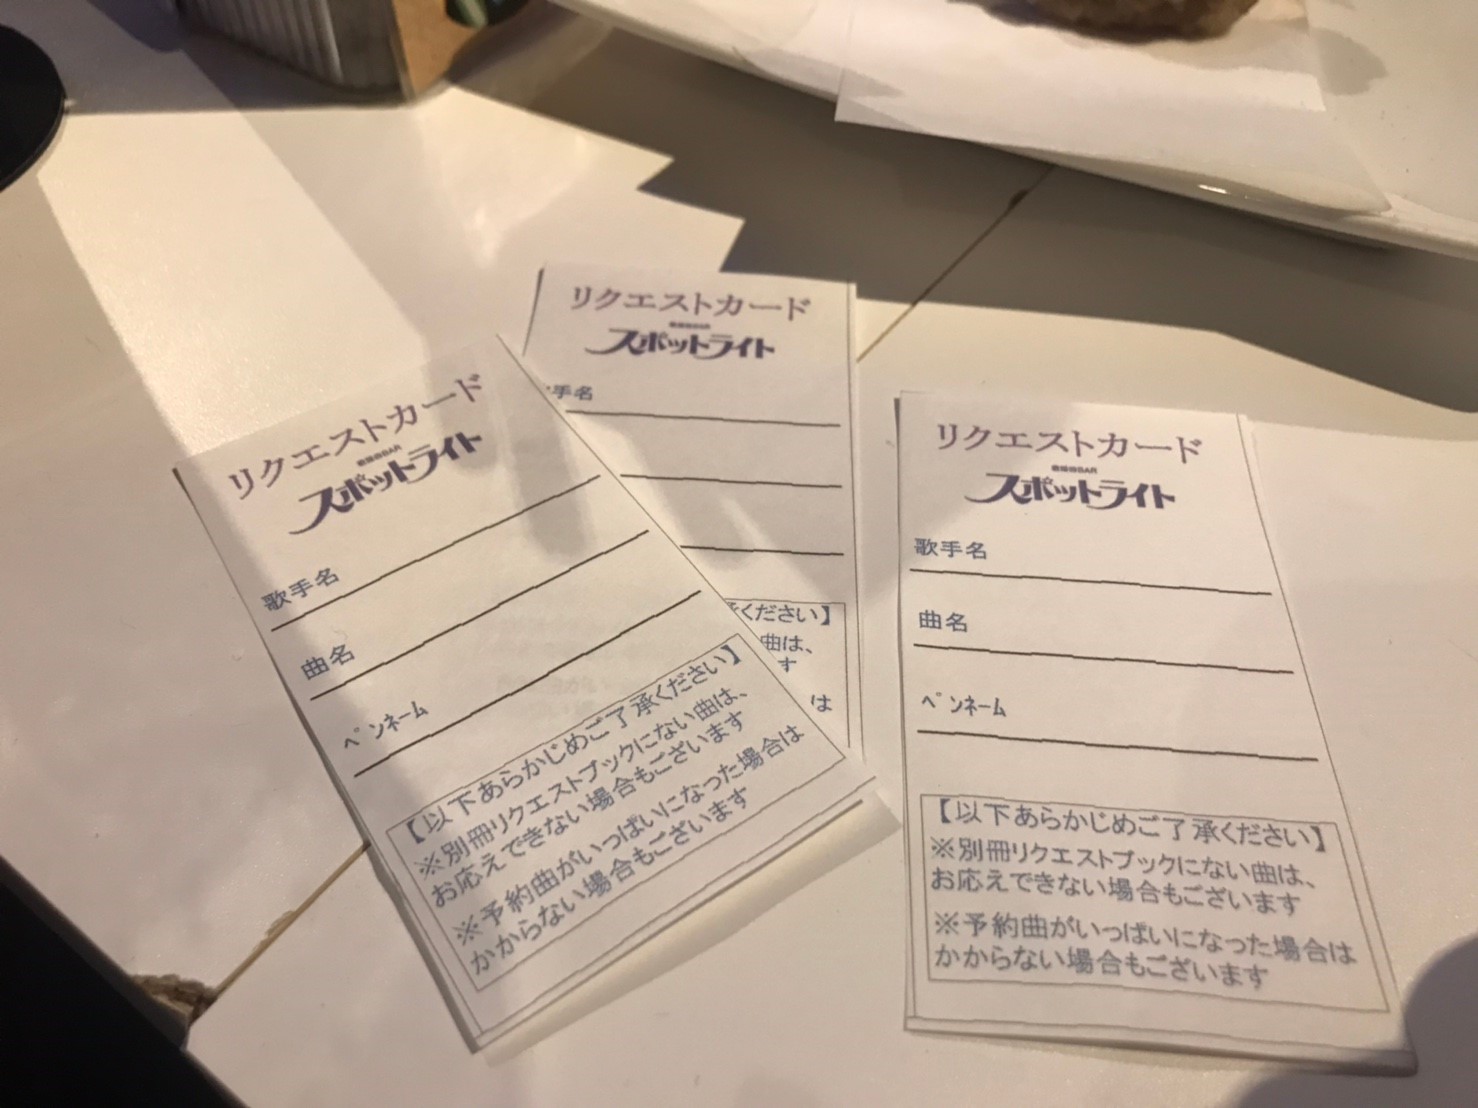 リクエストカード
スポットライト
歌手名
曲名
ペンネーム
【以下あらかじめご了承ください】
※別冊リクエストブックにない曲は、
お応えできない場合もございます
※予約曲がいっぱいになった場合は
かからない場合もございます
リクエストカード
スポットライト
手名
承ください】
曲は、
す
は
リクエストカード
歌謡曲BAR
スポットライト
歌手名
曲名
ペンネーム
【以下あらかじめご了承ください】
※別冊リクエストブックにない曲は、
お応えできない場合もございます
※予約曲がいっぱいになった場合は
かからない場合もございます